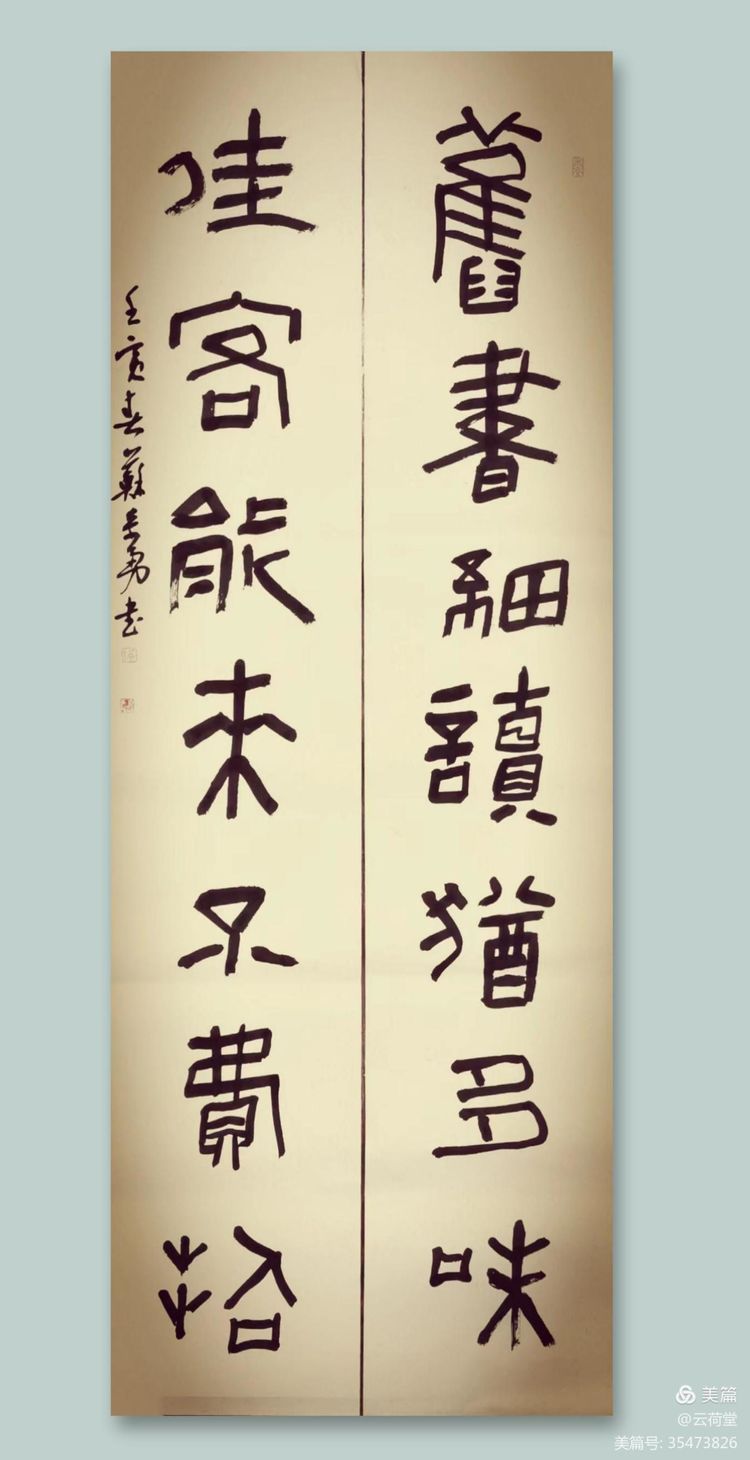 舊書細讀猶多味
佳客能來不費招
壬寅春蘇長勇書
美篇
@云荷堂
美篇号: 35473826